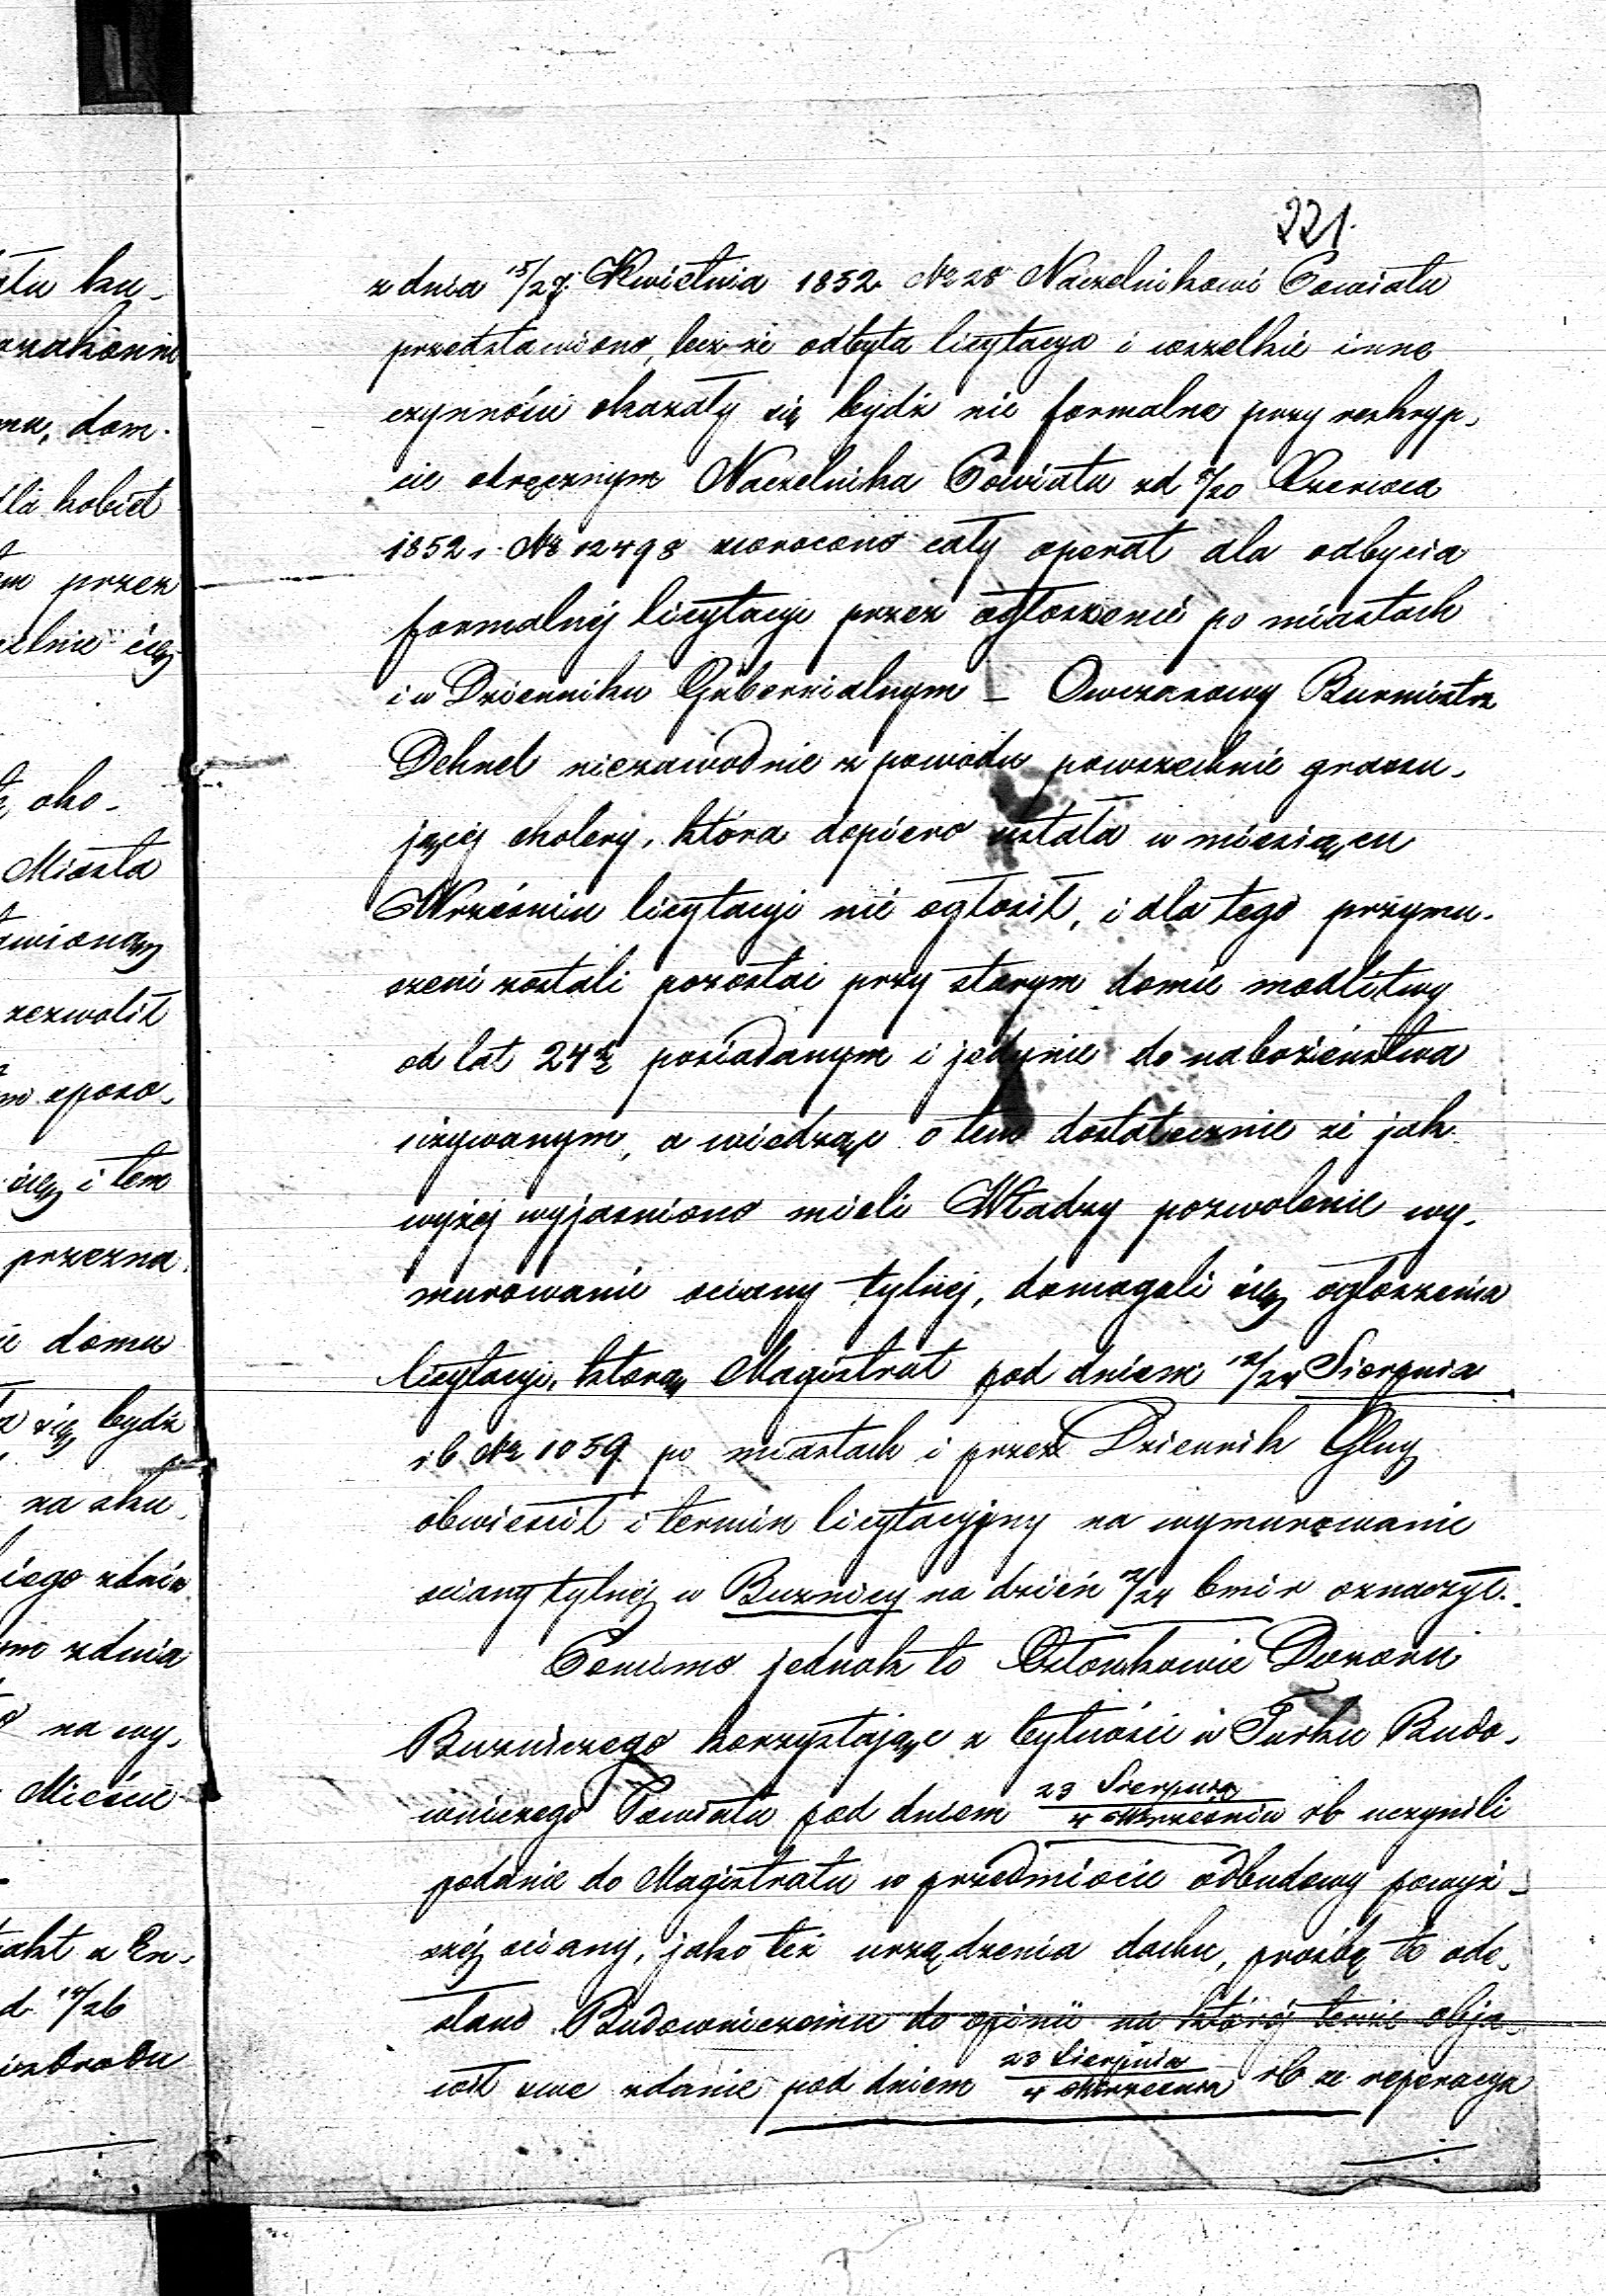 221.
z dnia 15/27 Kwietnia 1852 № 28 Naczelnikowi Powiatu
przedstawiono, lecz że odbyta licytacya i wszelkie inne
czynności okazały się bydź nie formalne przy reskryp-
cie okręcznym Naczelnika Powiatu zd 8/20 Czerwca
1852 r. № 12498 zwrocono cały operat dla odbycia
formalnéj licytacyi przez ogłoszenie po miastach
i w Dzienniku Gubernialnym – Owczasowy Burmistrz
Dehnel niezawodnie z powodu powszechnie grassu-
jącéj cholery, która dopiero ustała w miesiącu
Wrześniu licytacyi nie ogłosił, i dla tego przymu-
szeni zostali pozostać przy starym domie modlitwy
od lat 24ch posiadanym i jedynie do nabożeństwa
używanym, a wiedząc o tem dostatecznie że jak
wyżéj wyjaśniono mieli Władzy pozwolenie wy-
murowanie sciany tylnej, domagali się ogłoszenia
licytacyi, którą Magistrat pod dniem 12/24 Sierpnia
rb № 1059 po miastach i przez Dziennik Glny
obwieścił i termin licytacyjny na wymurowanie
sciany tylnéj w Buznicy na dzień 12/24 bmi r oznaczył.
Pomimo jednak to Członkowie Dozoru
Buzniczego korzystając z bytności w Turku Budo-
wniczego Powiatu pod dniem 23 Sierpnia/4 Września rb uczynili
podanie do Magistratu w przedmiocie odbudowy powyż-
széj sciany, jako też urządzenia dachu, prośbę tę ode-
słano Budowniczemu do opinii na któréj tenże obja-
wił swe zdanie pod dniem 23 Sierpnia/4 Września rb że reperacya